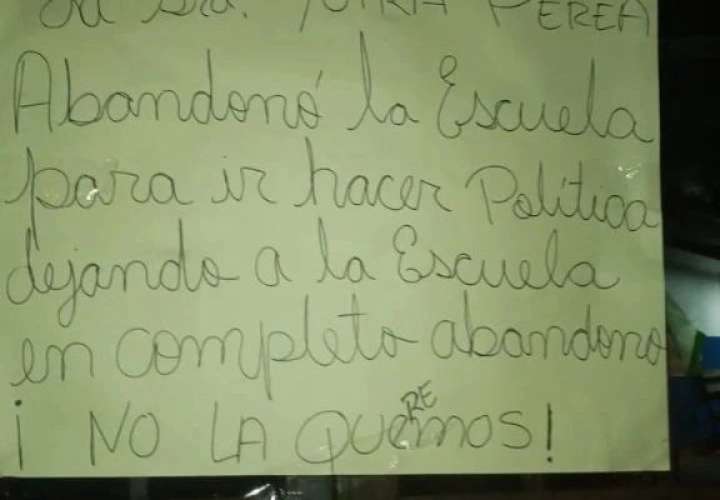 La Sra. YUIRIA PEREA
Abandonó la Escuela
para ir hacer Política
dejando a la Escuela
en completo abandono
¡ NO LA QUEREMOS!